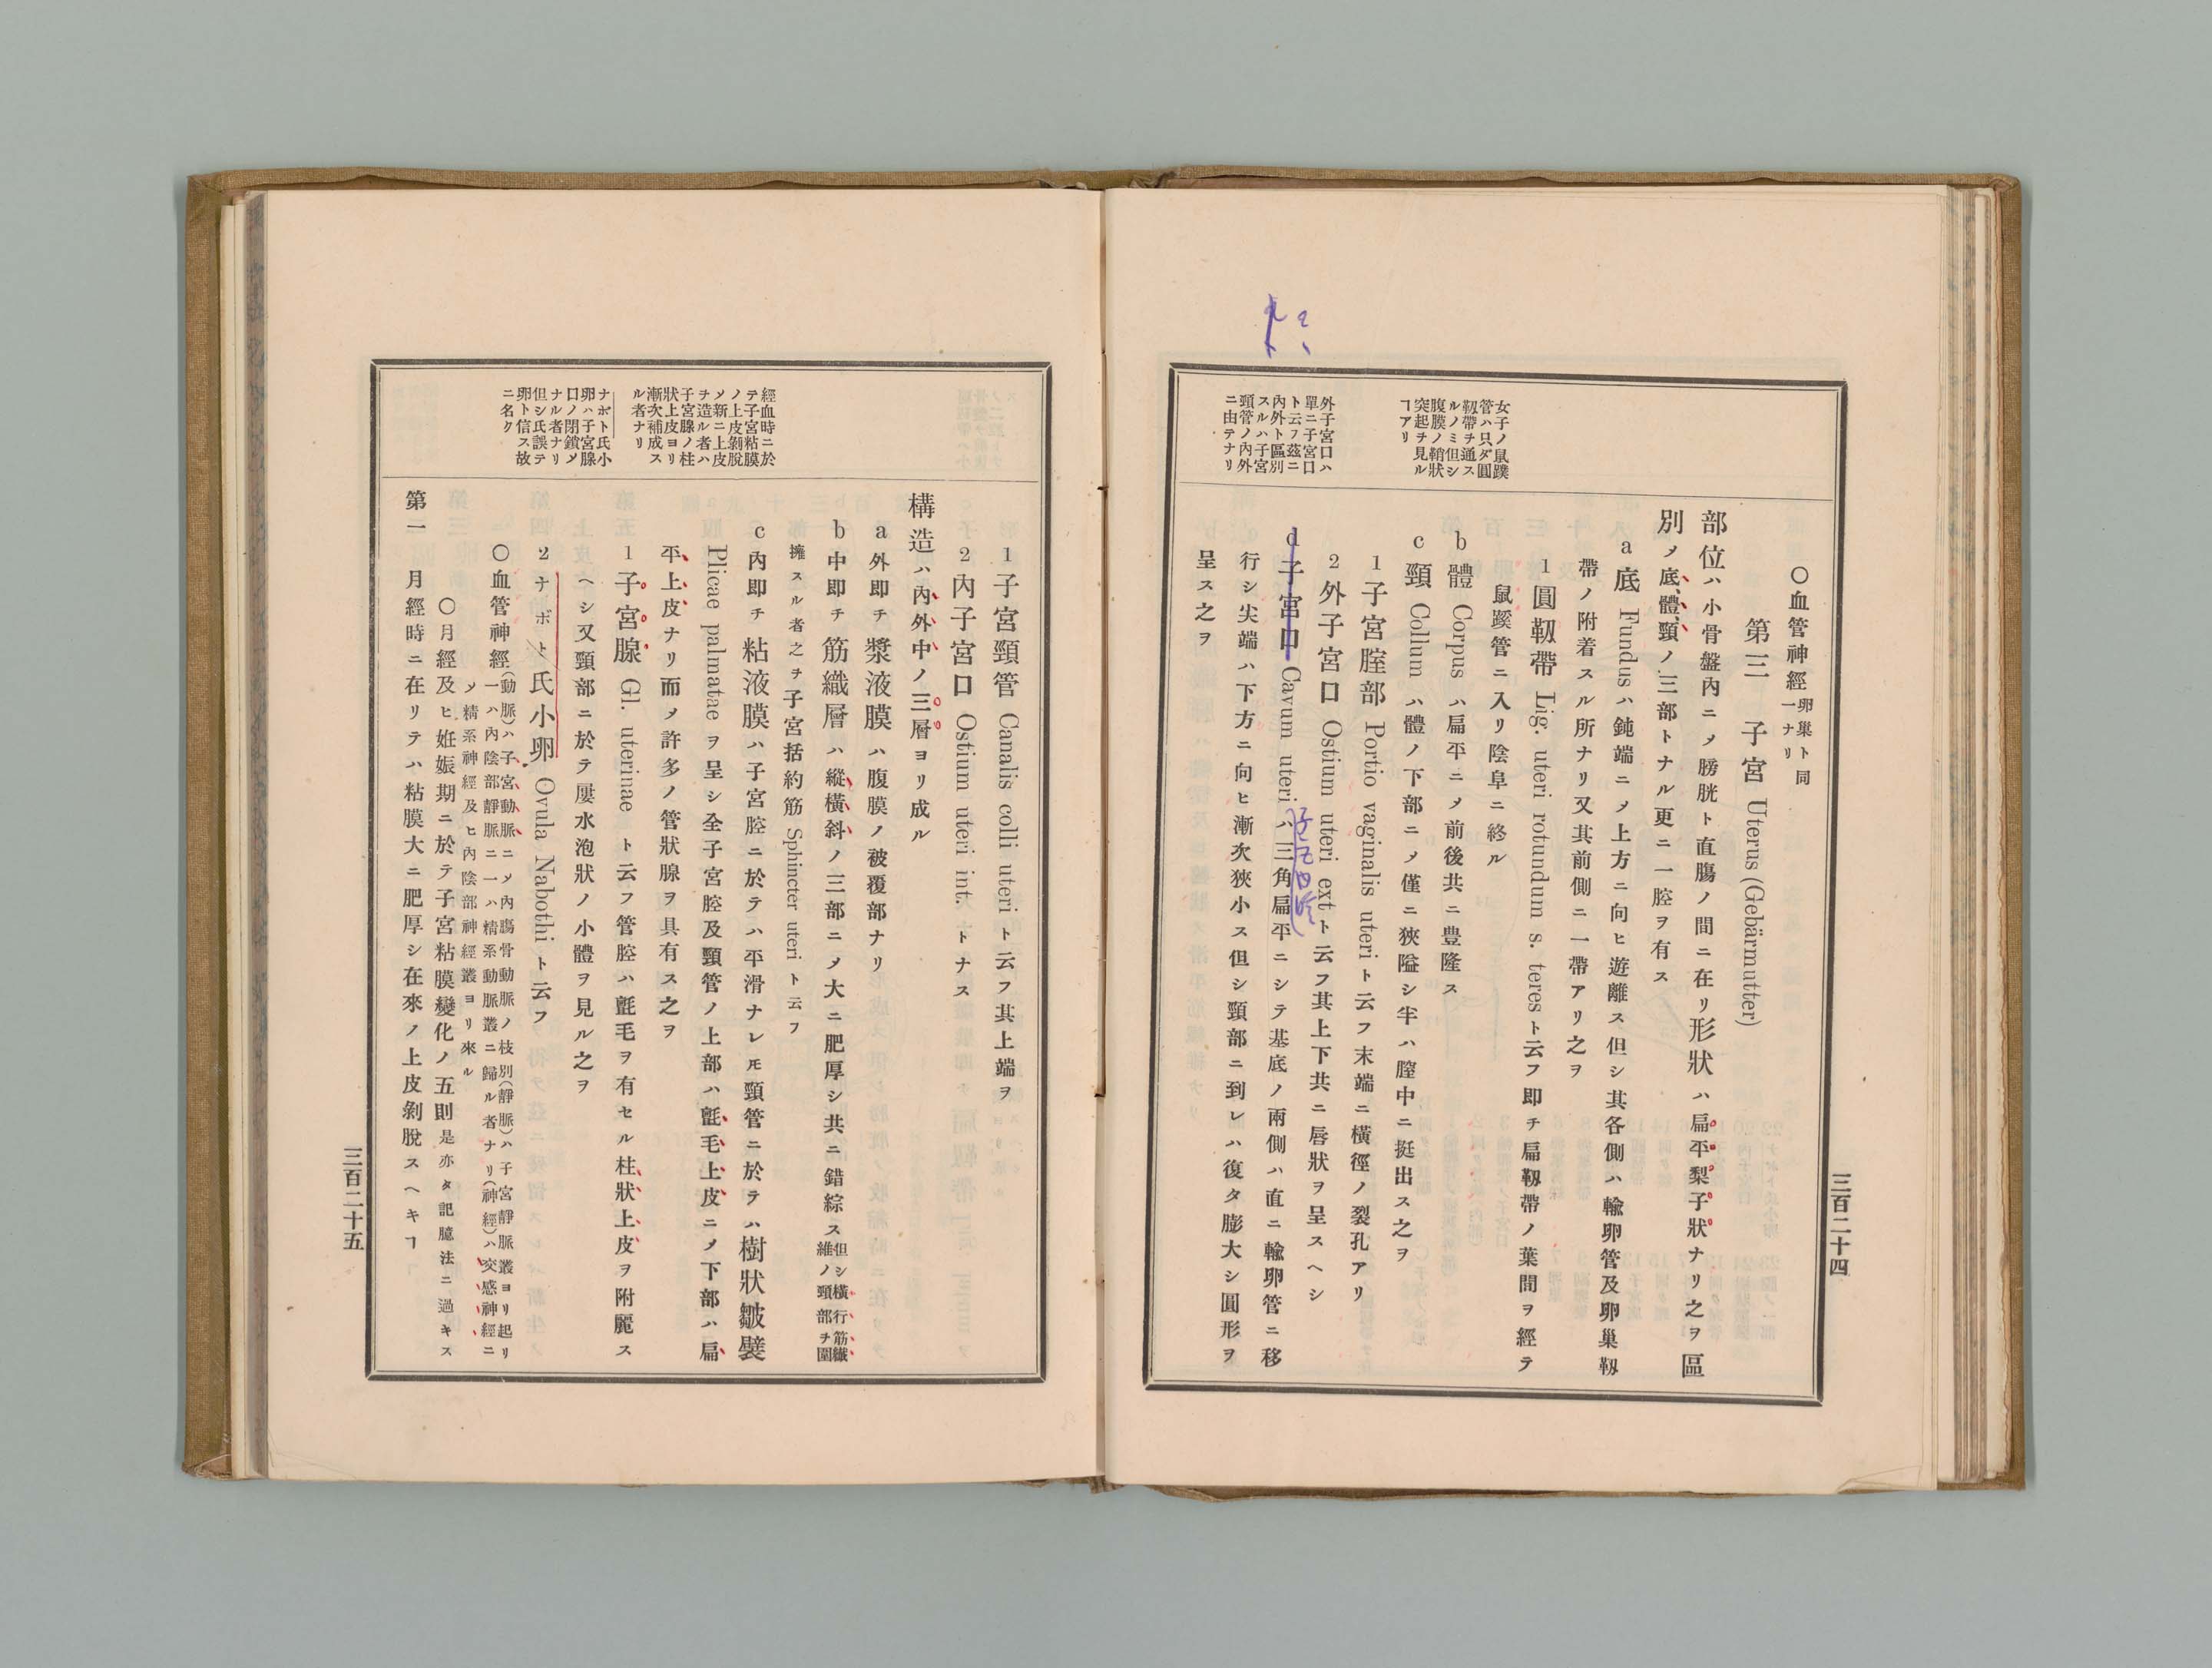 女子ノ鼠蹊
管ハ只ダ圓
靱帶チ通ス
ルノミ但シ
腹膜ノ鞘狀
突起チ見ル
ヿアリ
外子宮口ハ
單ニ子宮口
ト云フ茲ニ
內外ト區別
スルハ子宮
頸管ノ內外
ニ由テナリ
〇血管神經 卵巢ト同一ナリ
第三 子宮 Uterus (Gebärmutter)
部位ハ小骨盤內ニメ膀胱ト直腸ノ間ニ在リ形狀ハ扁平梨子狀ナリ之ヲ區
別ノ底、體、頸ノ三部トナル更ニ一腔ヲ有ス
a 底 Fundus ハ鈍端ニメ上方ニ向ヒ遊離ス但シ其各側ハ輸卵管及卵巢靱
帶ノ附着スル所ナリ又其前側ニ一帶アリ之ヲ
1 圓靱帶 Lig. uteri rotundum s. teres ト云フ即チ扁靱帶ノ葉間ヲ經テ
鼠蹊管ニ入リ陰阜ニ終ル
b 體 Corpus ハ扁平ニメ前後共ニ豊隆ス
c 頸 Collum ハ體ノ下部ニメ僅ニ狹隘シ半ハ膣中ニ挺出ス之ヲ
1 子宮腟部 Portio vaginalis uteri ト云フ末端ニ橫徑ノ裂孔アリ
2 外子宮口 Ostium uteri ext ト云フ其上下共ニ唇狀ヲ呈スヘシ
d 子宮口 Cavum uteri ハ三角扁平ニシテ基底ノ兩側ハ直ニ輸卵管ニ移
行シ尖端ハ下方ニ向ヒ漸次狹小ス但シ頸部ニ到レハ復タ膨大シ圓形ヲ
呈ス之ヲ
三百二十四
經血時ニ於
テ子宮粘膜
ノ上皮剝脫
メ新ニ上皮
チ造ル者ハ
子宮腺ノ柱
狀上皮ヨリ
漸次補成ス
ル者ナリ
ナボト氏小
卵ハ子宮腺
口ノ閉鎖メ
ナル者ナリ
但シ氏誤テ
卵ト信ス故
ニ名ク
1 子宮頸管 Canalis colli uteri ト云フ其上端ヲ
2 內子宮口 Ostium uteri int. トナス
構造ハ內外中ノ三層ヨリ成ル
a 外即チ漿液膜ハ腹膜ノ被覆部ナリ
b 中即チ筋織層ハ縱橫斜ノ三部ニメ大ニ肥厚シ共ニ錯綜ス 但シ橫行筋纖維ノ頸部チ圍
擁スル者之ヲ子宮括約筋 Sphincter uteri ト云フ
c 內即チ粘液膜ハ子宮腔ニ於テハ平滑ナレモ頸管ニ於テハ樹狀皺襞
Plicae palmatae ヲ呈シ全子宮腔及頸管ノ上部ハ氈毛上皮ニメ下部ハ扁
平上皮ナリ而ヲ許多ノ管狀腺ヲ具有ス之ヲ
1 子宮腺 Gl. uterinae ト云フ管腔ハ氈毛ヲ有セル柱狀上皮ヲ附麗ス
ヘシ又頸部ニ於テ屢水泡狀ノ小體ヲ見ル之ヲ
2 ナボト氏小卵 Ovula Nabothi ト云フ
〇血管神經(動脈)ハ子宮動脈ニメ內膓骨動脈ノ枝別(靜脈)ハ子宮靜脈叢ヨリ起リ
一ハ內陰部靜脈ニ一ハ精系動脈叢ニ歸ル者ナリ(神經)ハ交感神經ニ
メ精系神經及ヒ內陰部神經叢ヨリ來ル
〇月經及ヒ姙娠期ニ於テ子宮粘膜變化ノ五則 是亦タ記臆法ニ過キス
第一 月經時ニ在リテハ粘膜大ニ肥厚シ在來ノ上皮剝脫スヘキヿ
三百二十五